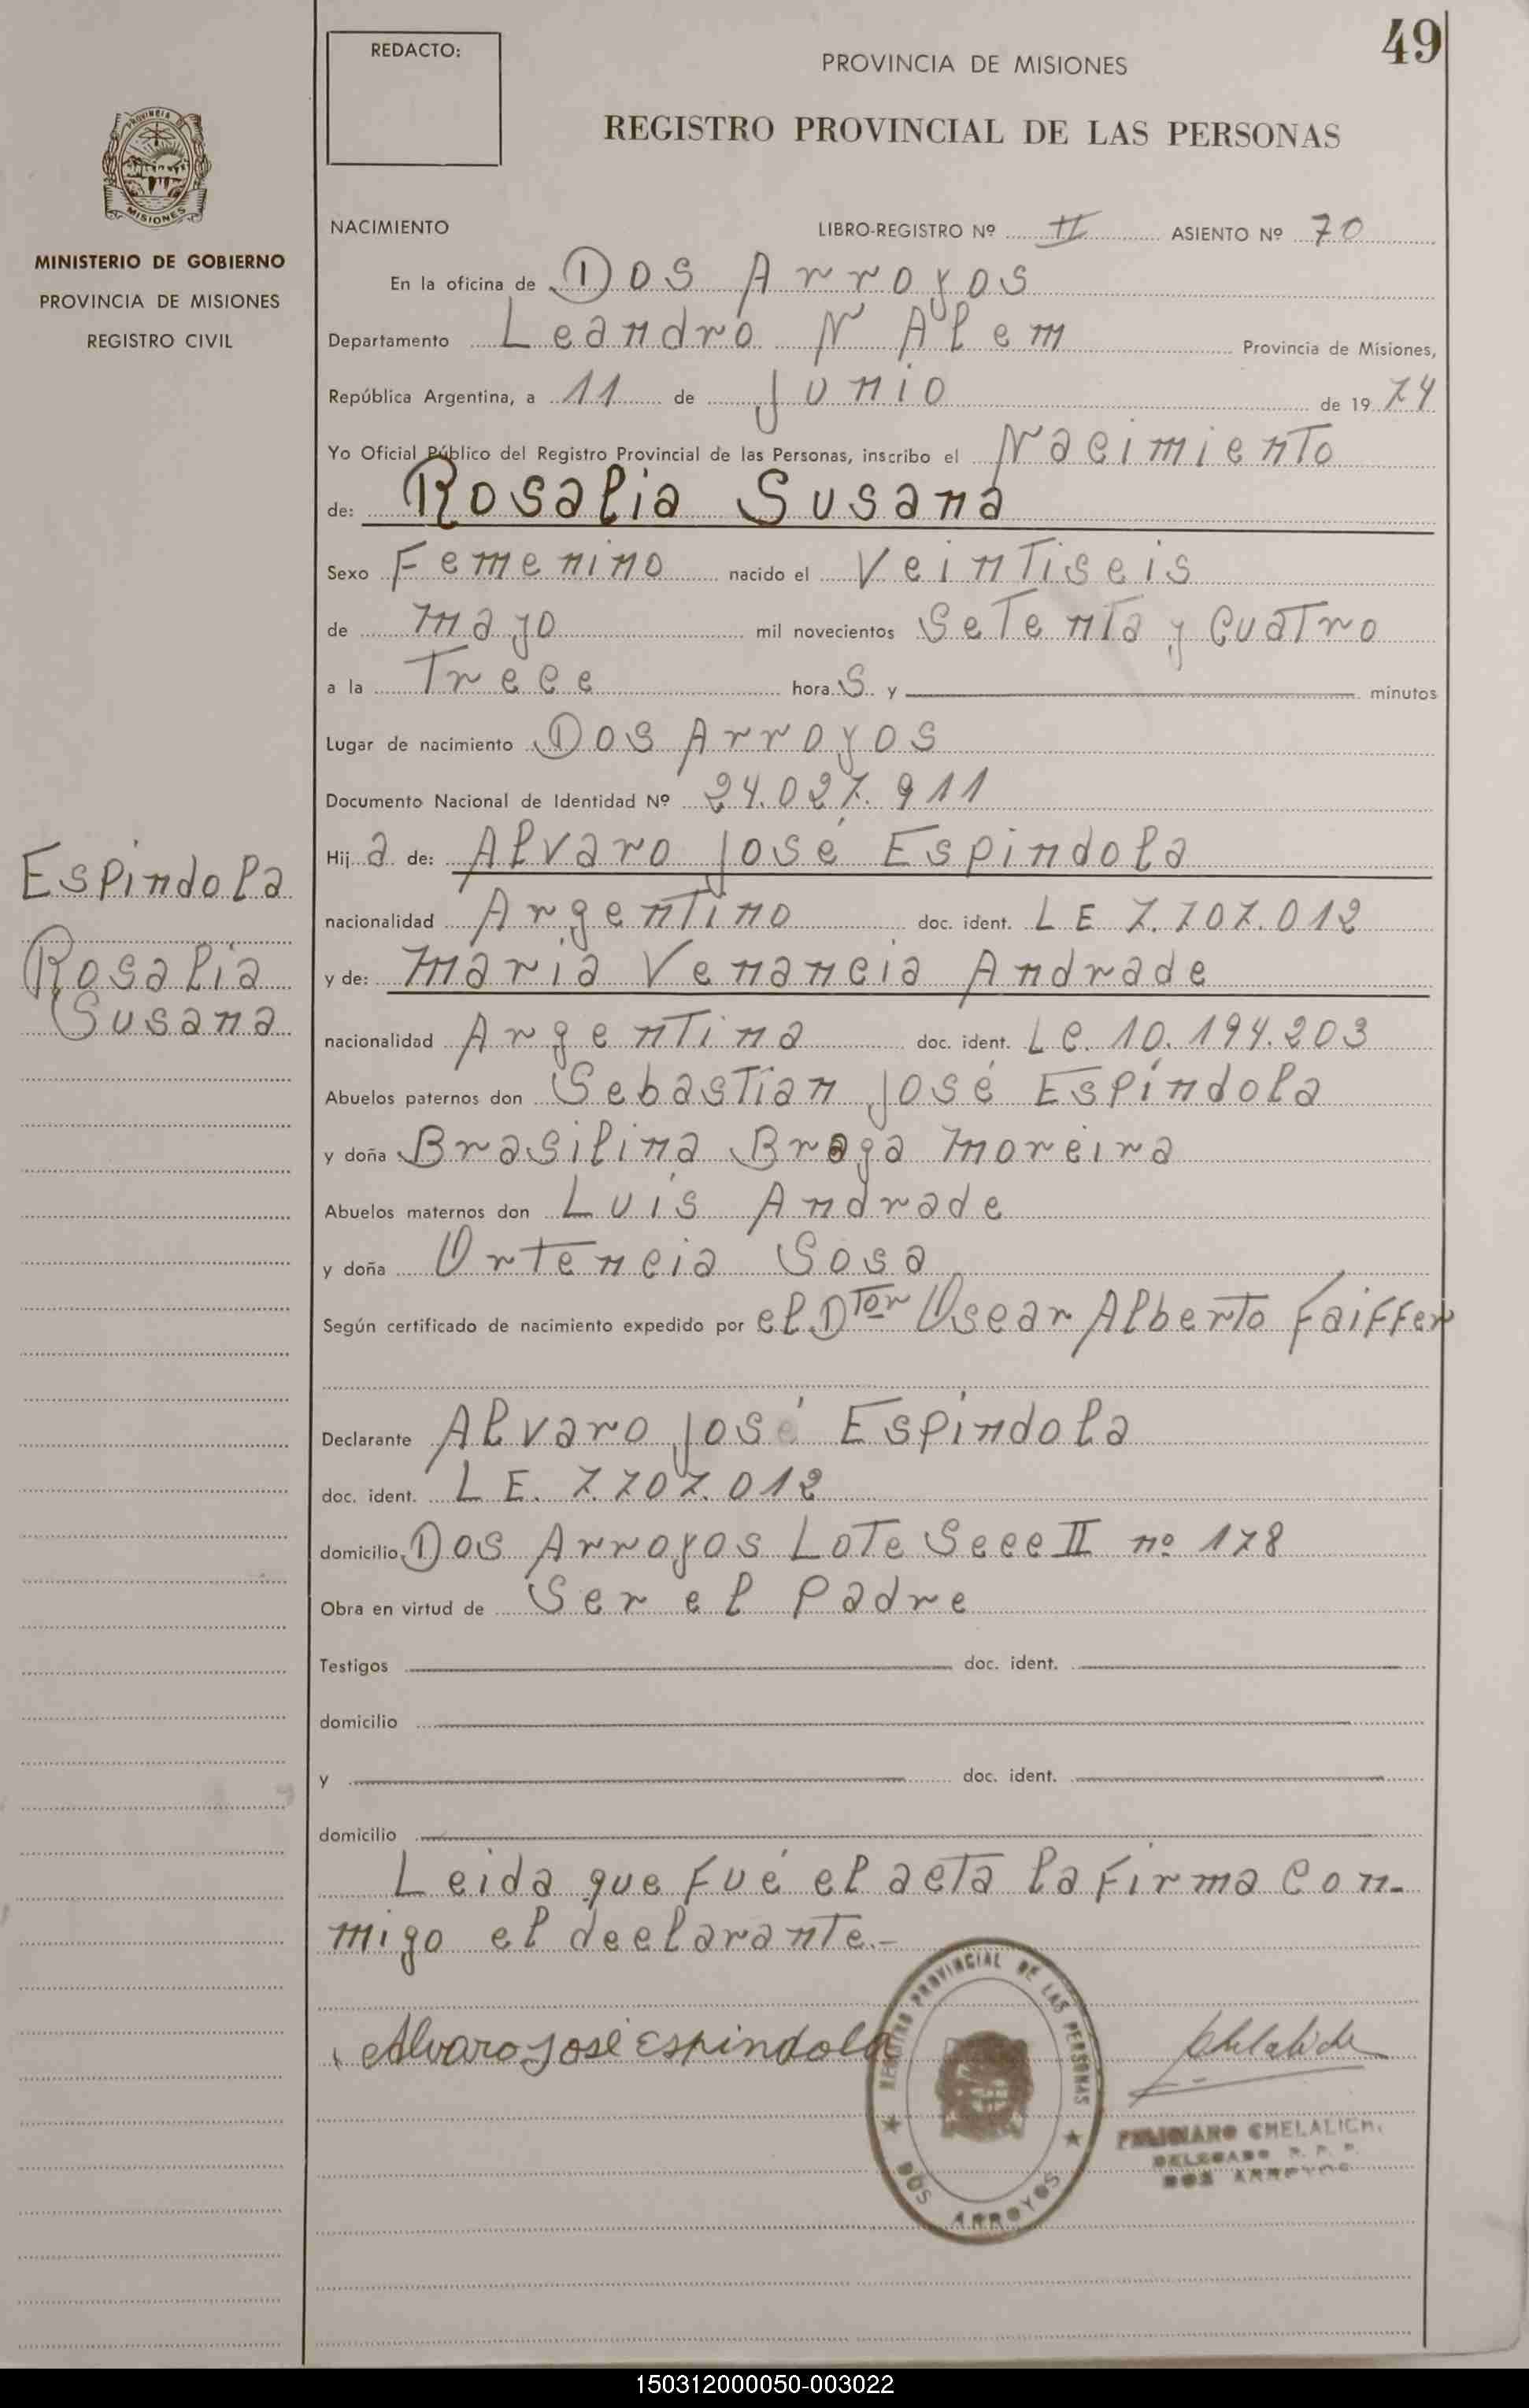 49
REDACTO:
PROVINCIA DE MISIONES
REGISTRO PROVINCIAL DE LAS PERSONAS
PROVINCIA DE
MISIONES
MINISTERIO DE GOBIERNO
PROVINCIA DE MISIONES
REGISTRO CIVIL
NACIMIENTO LIBRO-REGISTRO Nº II ASIENTO Nº 70
En la oficina de Dos Arroyos
Departamento Leandro N Alem Provincia de Misiones,
República Argentina, a 11 de Junio de 1974
Yo Oficial Público del Registro Provincial de las Personas, inscribo el Nacimiento
de: Rosalia Susana
Sexo Femenino nacido el Veintiseis
de mayo mil novecientos Setenta y Cuatro
a la Trece horas y minutos
Lugar de nacimiento Dos Arroyos
Documento Nacional de Identidad Nº 24.027.911
Hija de: Alvaro José Espindola
nacionalidad Argentino doc. ident. LE 7.707.012
y de: Maria Venancia Andrade
nacionalidad Argentina doc. ident. LC. 10.194.203
Abuelos paternos don Sebastian José Espíndola
y doña Brasilina Braga Moreira
Abuelos maternos don Luis Andrade
y doña Ortencia Sosa
Según certificado de nacimiento expedido por el Dtor Oscar Alberto Faiffer
Declarante Alvaro José Espindola
doc. ident. LE. 7.707.012
domicilio Dos Arroyos Lote Secc II nº 178
Obra en virtud de Ser el Padre
Testigos doc. ident.
domicilio
y doc. ident.
domicilio
Leida que fué el acta la firma con-
migo el declarante.-
Alvaro José Espindola
REGISTRO PROVINCIAL DE LAS PERSONAS
DOS ARROYOS
FELICIANO CHELALICH.
DELEGADO R. P. P.
DOS ARROYOS
Espindola
Rosalia
Susana
150312000050-003022